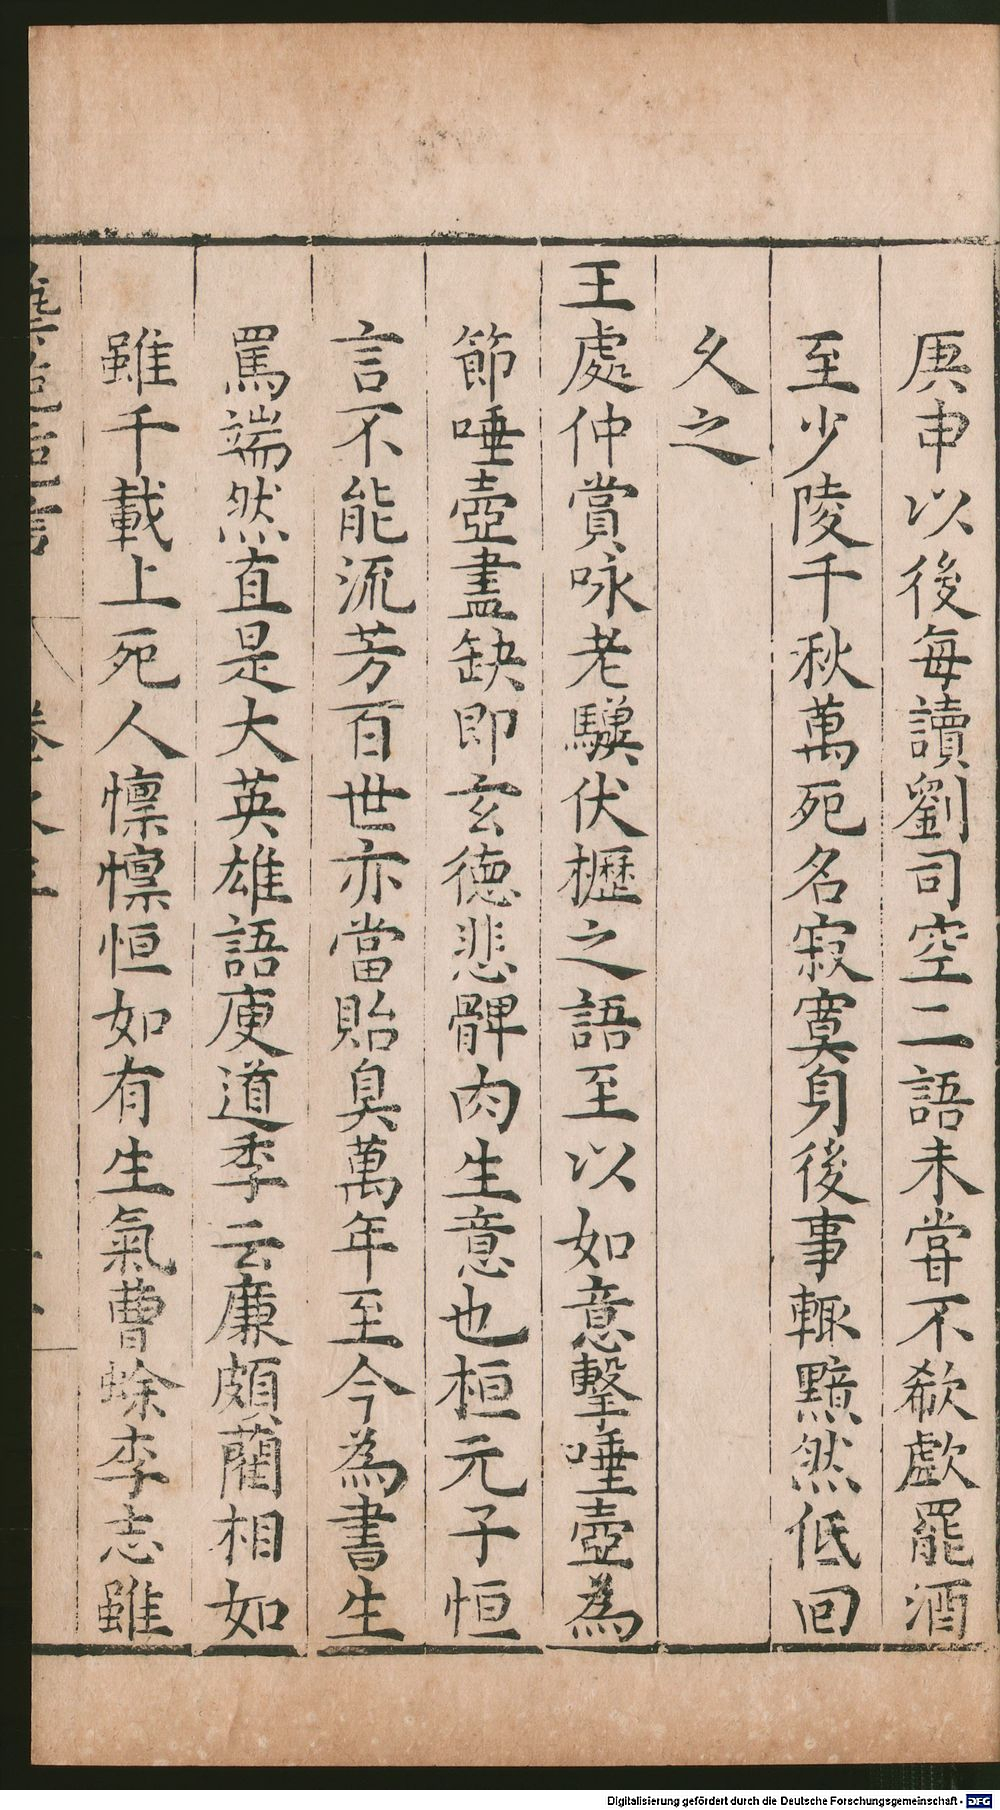 庚申以後每讀劉司空二語未甞不欷歔罷酒
至少陵千秋萬死名寂寞身後事輒黯然低回
久之
王處仲賞咏老驥伏櫪之語至以如意擊唾壺為
節唾壺盡缺即玄德悲髀肉生意也桓元子恒
言不能流芳百世亦當貽臭萬年至今為書生
罵端然直是大英雄語庾道季云廉頗藺相如
雖千載上死人懍懍恒如有生氣曹蜍李志雖
Digitalisierung gefördert durch die Deutsche Forschungsgemeinschaft - DFG